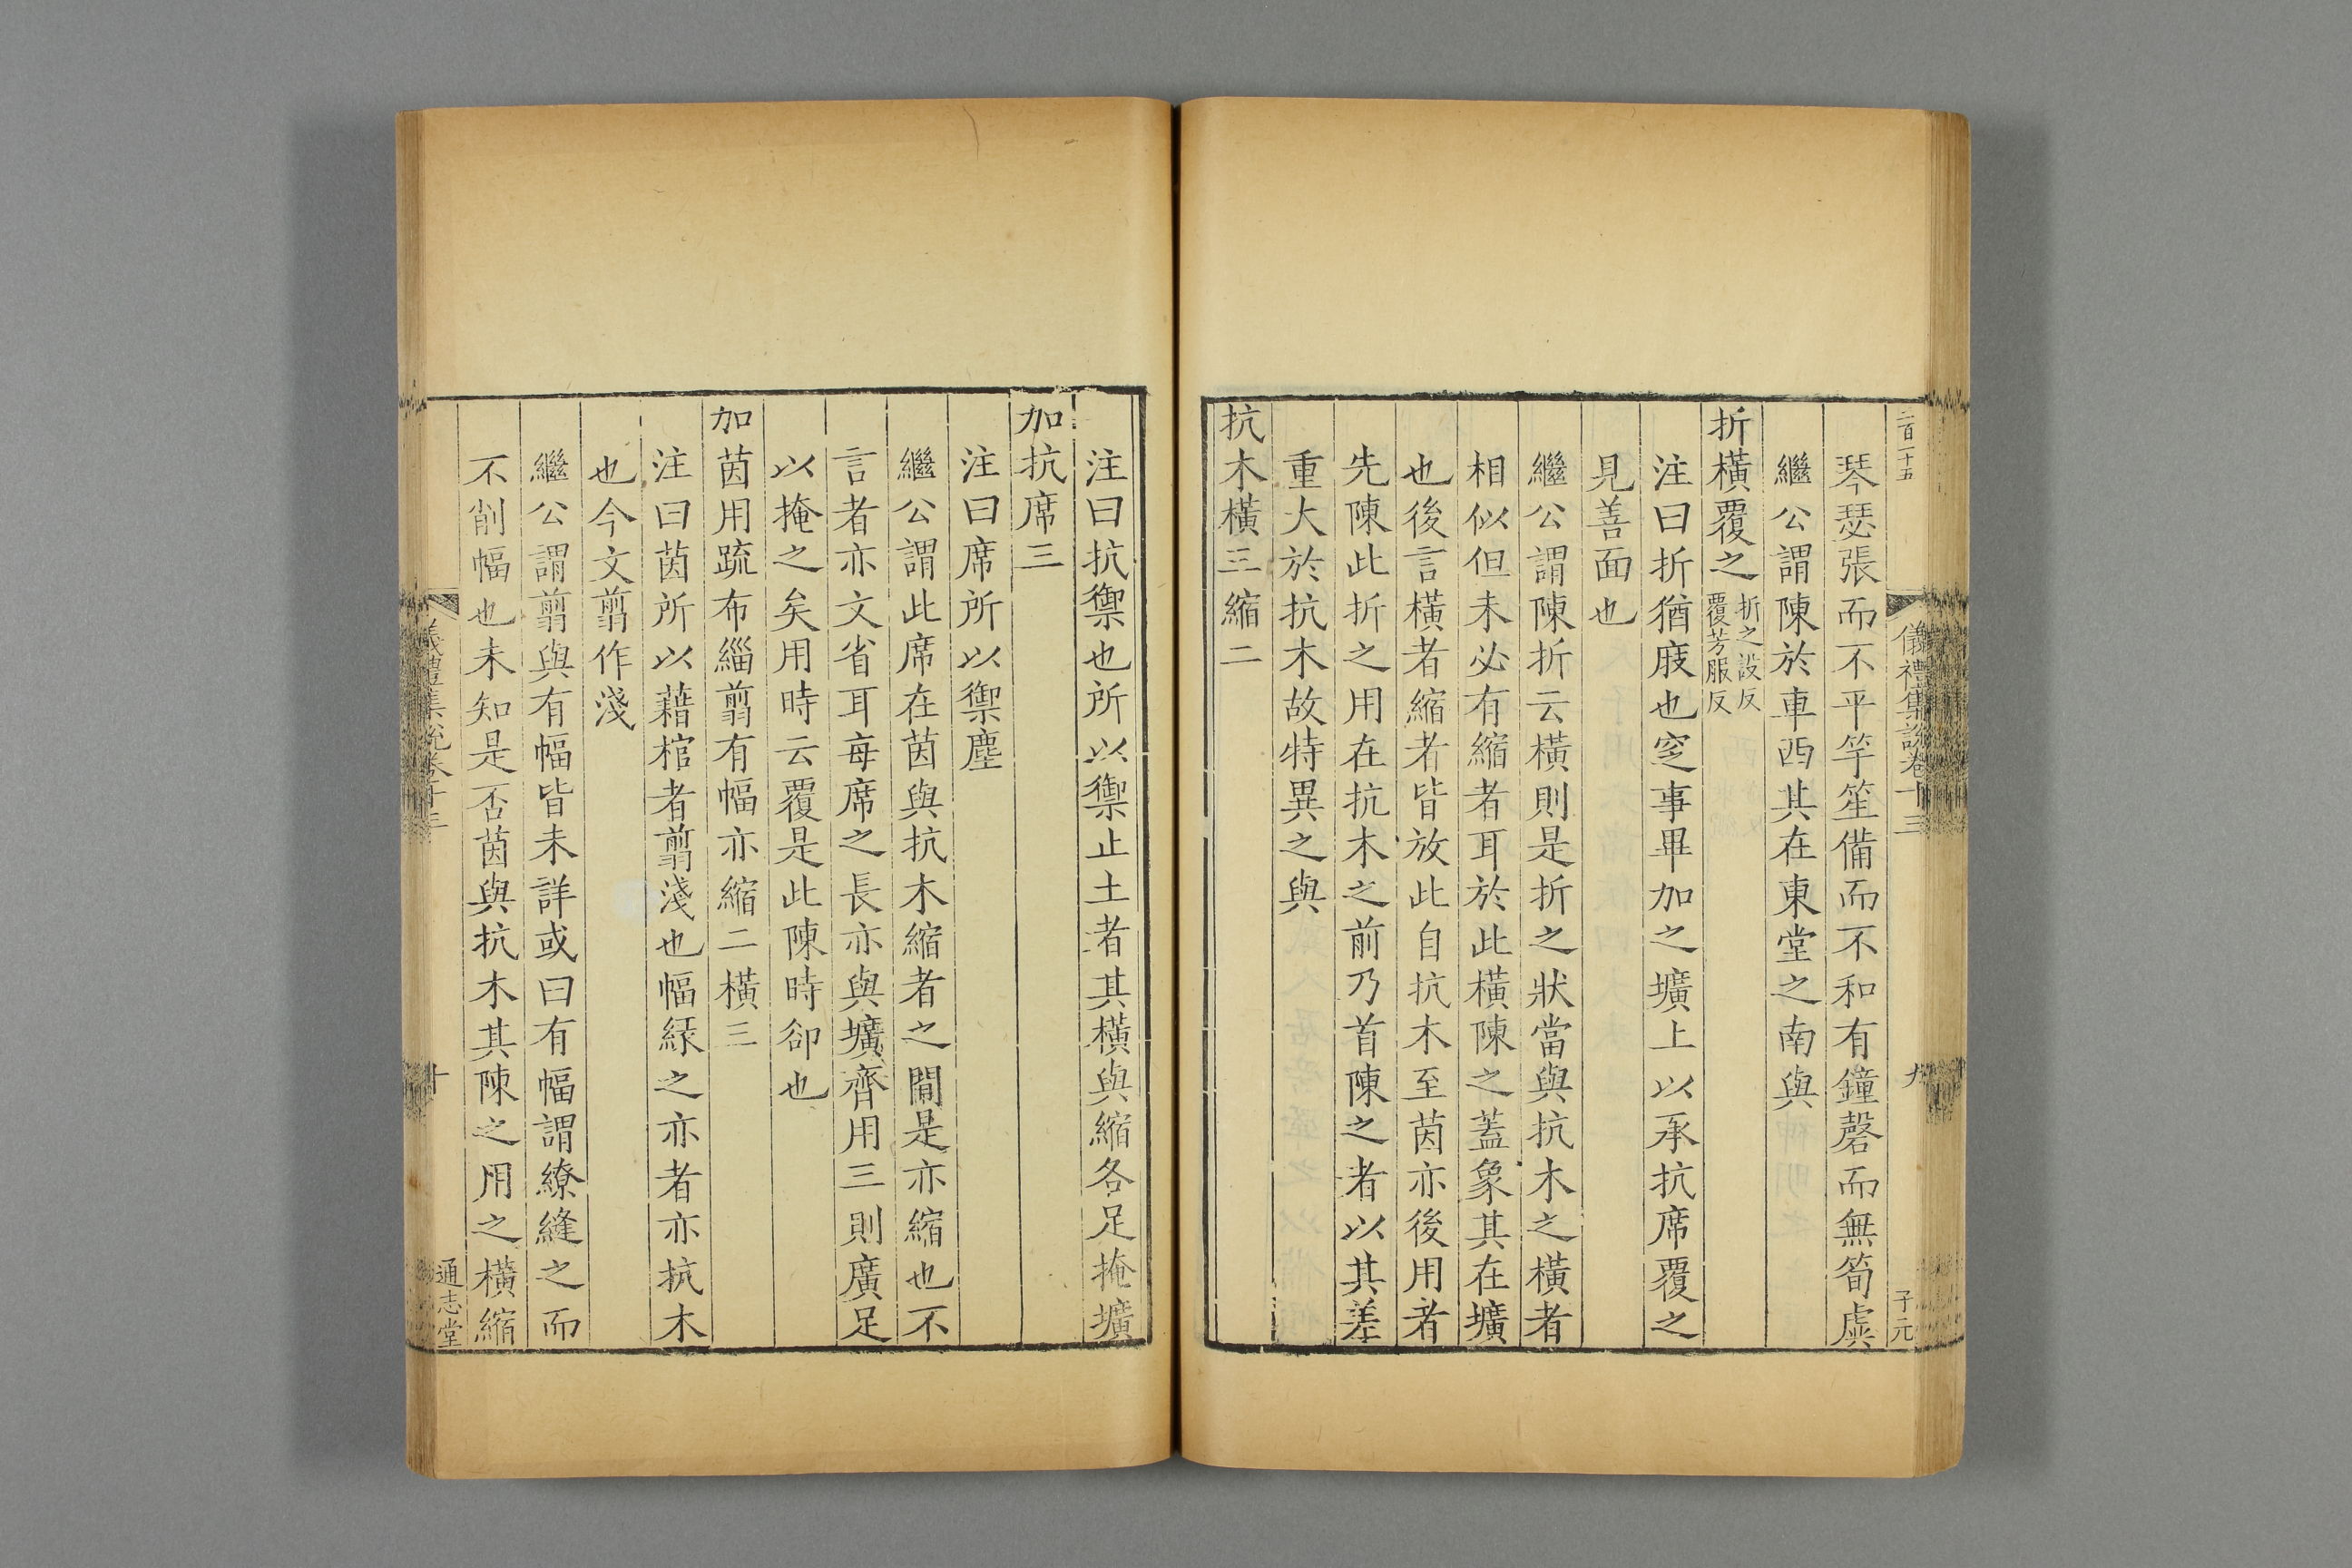 二百一十五
儀禮集說卷十三
九
子元
琴瑟張而不平竽笙備而不和有鐘磬而無筍虡
繼公謂陳於車西其在東堂之南與
折橫覆之折之設反覆芳服反
注曰折猶庪也窆事畢加之壙上以承抗席覆之
見善面也
繼公謂陳折云橫則是折之狀當與抗木之橫者
相似但未必有縮者耳於此橫陳之蓋象其在壙
也後言橫者縮者皆放此自抗木至茵亦後用者
先陳此折之用在抗木之前乃首陳之者以其差
重大於抗木故特異之與
抗木橫三縮二
注曰抗禦也所以禦止土者其橫與縮各足掩壙
加抗席三
注曰席所以禦塵
繼公謂此席在茵與抗木縮者之間是亦縮也不
言者亦文省耳每席之長亦與壙齊用三則廣足
以掩之矣用時云覆是此陳時卻也
加茵用疏布緇翦有幅亦縮二橫三
注曰茵所以藉棺者翦淺也幅緣之亦者亦抗木
也今文翦作淺
繼公謂翦與有幅皆未詳或曰有幅謂繚縫之而
不削幅也未知是否茵與抗木其陳之用之橫縮
儀禮集說卷十三
十
通志堂